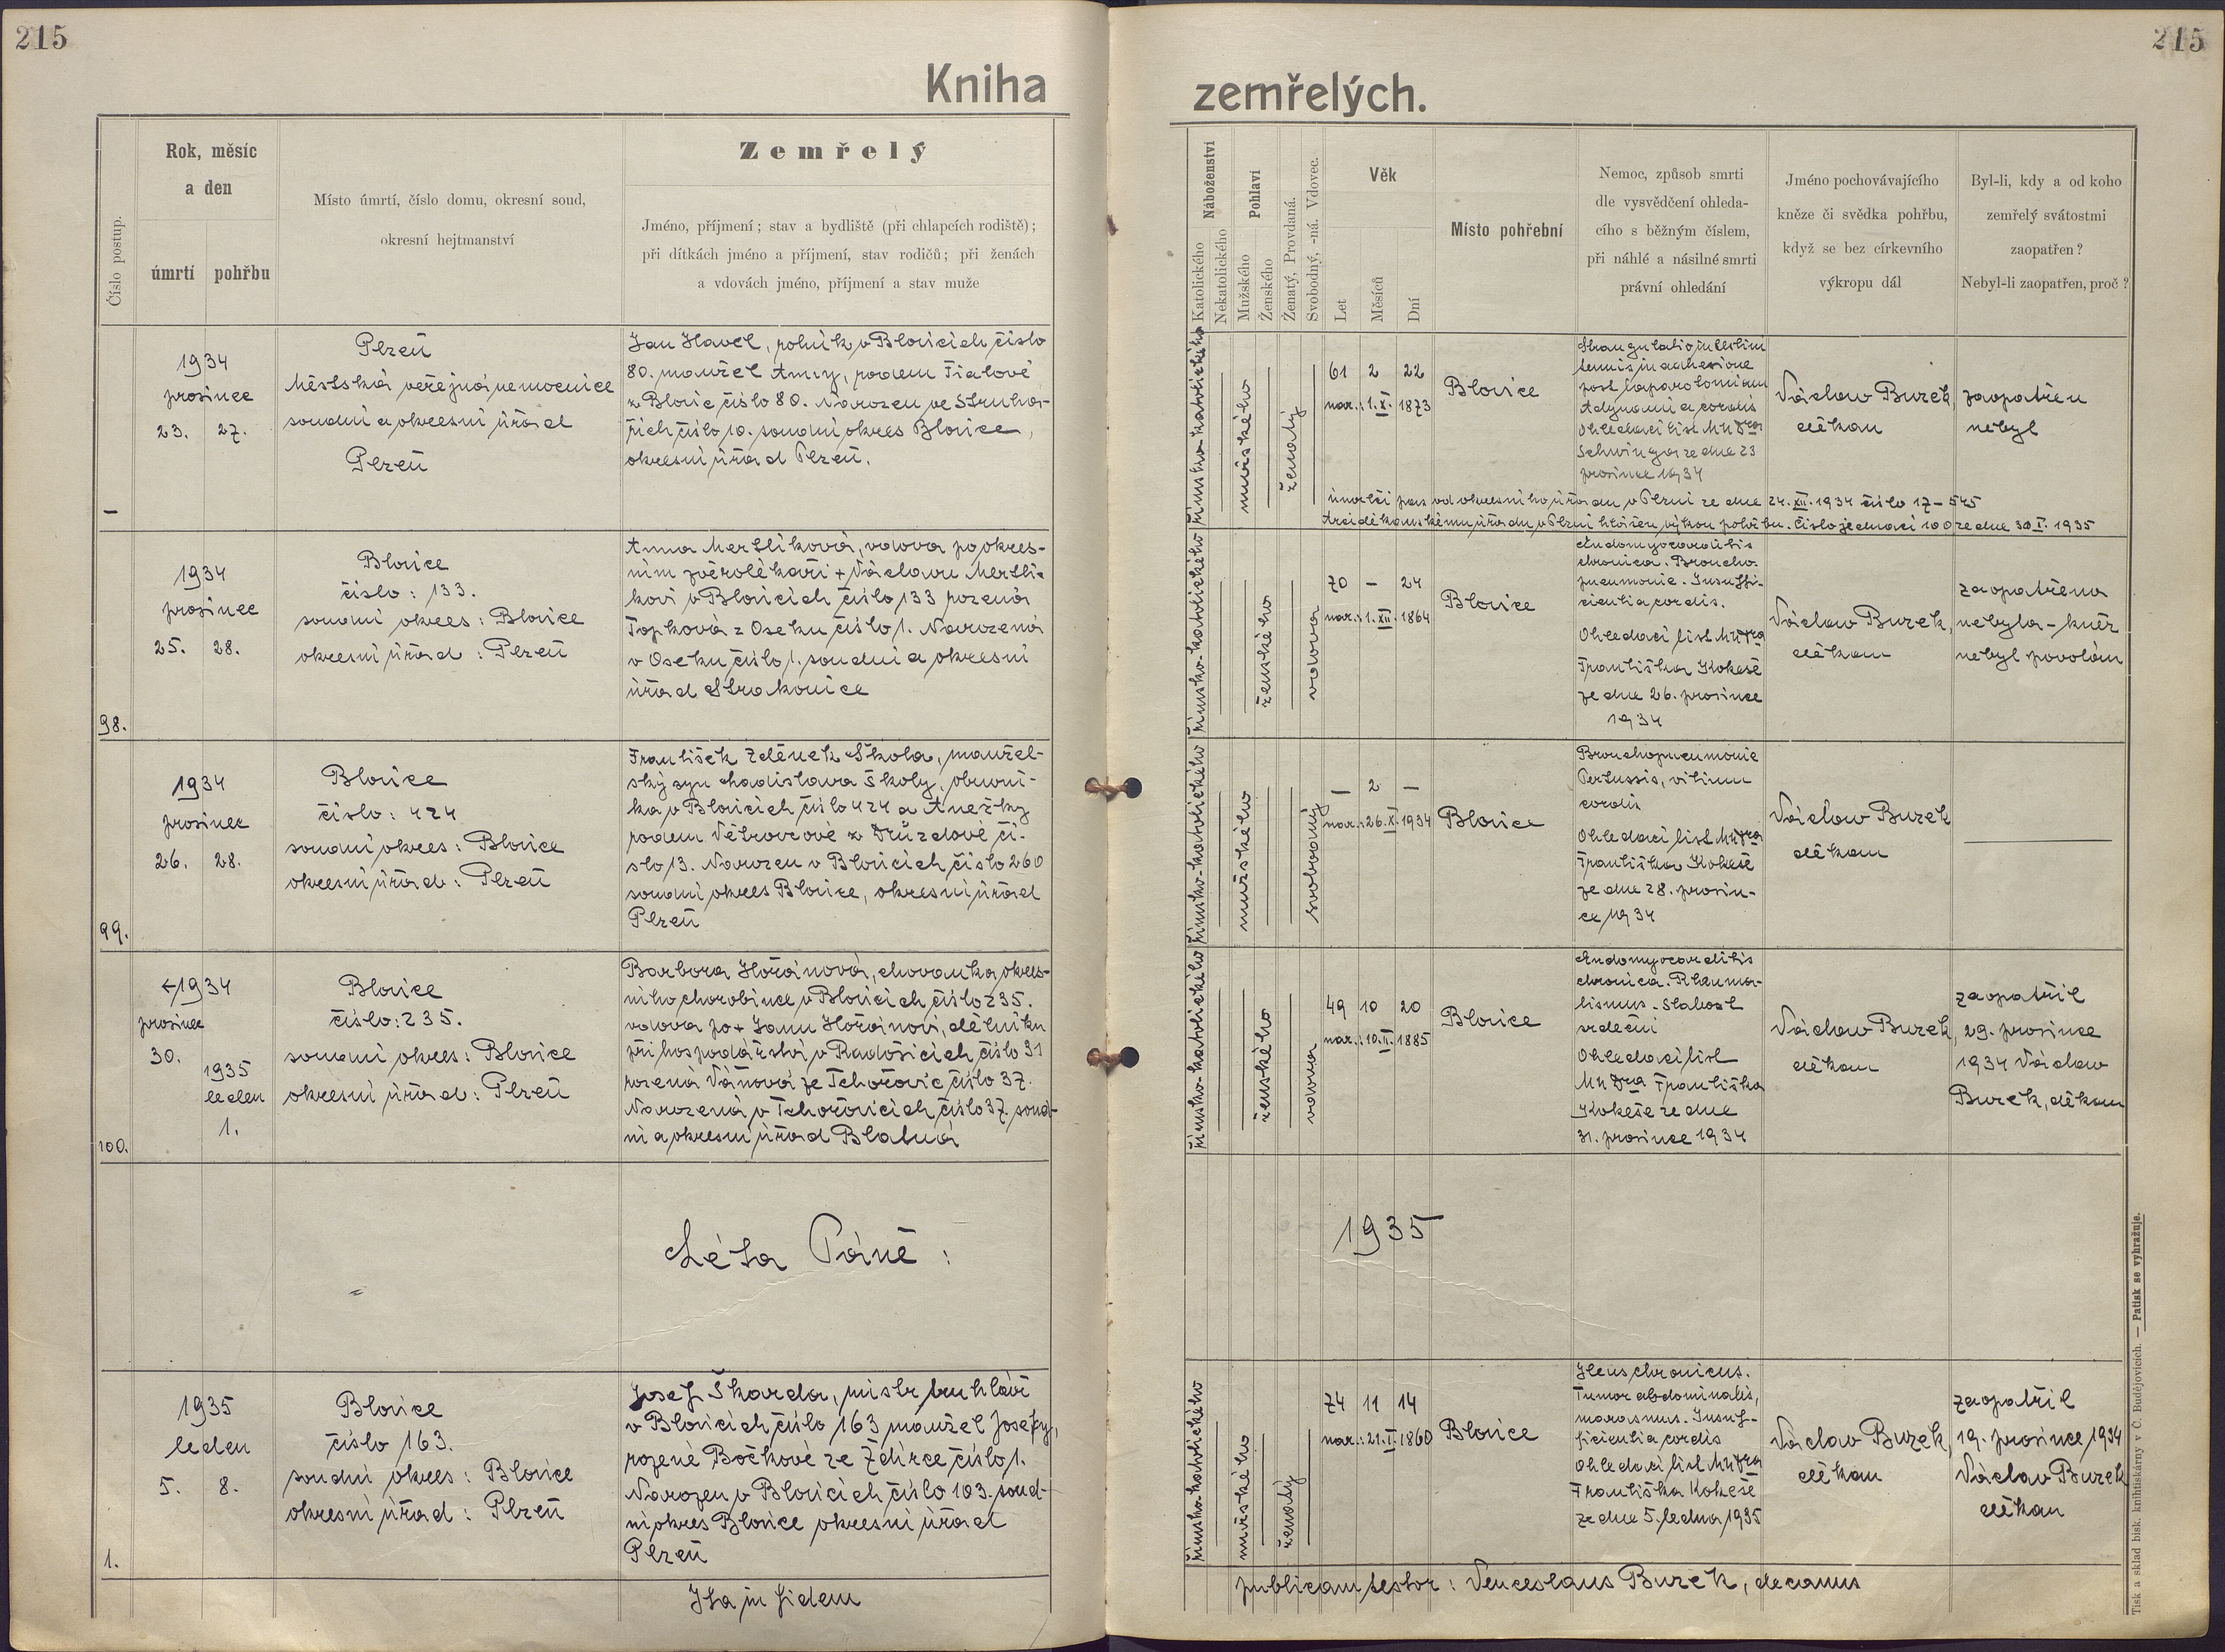 215
215
Kniha
zemřelých.
Číslo postup.
Rok, měsíc
a den
úmrtí
pohřbu
Místo úmrtí, číslo domu, okresní soud,
okresní hejtmanství
Zemřelý
Jméno, příjmení; stav a bydliště (při chlapcích rodiště);
při dítkách jméno a příjmení, stav rodičů; při ženách
a vdovách jméno, příjmení a stav muže
Náboženství
Katolického
Nekatolického
Pohlaví
Mužského
Ženského
Ženatý, Provdaná.
Svobodný, -ná. Vdovec.
Věk
Let
Měsíců
Dní
Místo pohřební
Nemoc, způsob smrti
dle vysvědčení ohleda-
cího s běžným číslem,
při náhlé a násilné smrti
právní ohledání
Jméno pochovávajícího
kněze či svědka pohřbu,
když se bez církevního
výkropu dál
Byl-li, kdy a od koho
zemřelý svátostmi
zaopatřen?
Nebyl-li zaopatřen, proč?
–
1934
prosinec
23. 27.
Plzeň
Městská veřejná nemocnice
soudní a okresní úřad
Plzeň
Jan Havel, rolník v Blovicích číslo
80. manžel Anny, rodem Fialové
z Blovic číslo 80. Narozen ve Struha-
řích číslo 10. soudní okres Blovice,
okresní úřad Plzeň.
římsko-katolického
mužského
ženatý
61 2 22
nar.: 1. X. 1873
Blovice
Strangulatio intestini
tenuis in adhesione
post laparotomiam
Adynamia cordis
Ohledací list MUDra
Schwinga ze dne 23
prosince 1934
Václav Burek,
děkan
zaopatřen
nebyl
úmrtní pas od okresního úřadu v Plzni ze dne 24. XII. 1934 číslo 17-545
Arciděkanskému úřadu v Plzni hlášen výkon pohřbu. Číslo jednací 100 ze dne 30 I. 1935
98.
1934
prosinec
25. 28.
Blovice
číslo: 133.
soudní okres: Blovice
okresní úřad: Plzeň
Anna Mertlíková, vdova po okres-
ním zvěrolékaři + Václavu Mertlí-
kovi v Blovicích číslo 133 rozená
Topková z Oseku číslo 1. Narozená
v Oseku číslo 1. soudní a okresní
úřad Strakonice
římsko-katolického
ženského
vdova
70 – 24
nar.: 1. XII. 1864
Blovice
Endomyocarditis
chronica. Broncho-
pneumonie. Insuffi-
cientia cordis.
Ohledací list MUDra
Františka Kokeše
ze dne 26. prosince
1934
Václav Burek,
děkan
zaopatřena
nebyla – kněz
nebyl povolán
99.
1934
prosinec
26. 28.
Blovice
číslo: 424
soudní okres: Blovice
okresní úřad: Plzeň
František Zdeněk Škola, manžel-
ský syn Ladislava Školy, obuvní-
ka v Blovicích číslo 424 a Anežky
rodem Větrovcové z Drůzdové čí-
slo 13. Narozen v Blovicích číslo 260
soudní okres Blovice, okresní úřad
Plzeň
římsko-katolického
mužského
svobodný
– 2 –
nar.: 26. X. 1934
Blovice
Bronchopneumonie
Pertussis, vitium
cordis
Ohledací list MUDra
Františka Kokeše
ze dne 28. prosin-
ce 1934
Václav Burek
děkan
100.
1934
prosinec
30.
1935
leden
1.
Blovice
číslo: 235.
soudní okres: Blovice
okresní úřad: Plzeň
Barbora Hořánová, chovanka okres-
ního chorobince v Blovicích číslo 235.
vdova po + Janu Hořánovi, dělníku
při hospodářství v Radošicích číslo 31
rozená Váňová ze Tchořovic číslo 37.
Narozená v Tchořovicích číslo 37. soud-
ní a okresní úřad Blatná
římsko-katolického
ženského
vdova
49 10 20
nar.: 10. II. 1885
Blovice
Endomyocarditis
chronica. Rheuma-
tismus – Slabost
srdeční
Ohledací list
MUDra Františka
Kokeše ze dne
31. prosince 1934
Václav Burek,
děkan
zaopatřil
29. prosince
1934 Václav
Burek, děkan
Léta Páně:
1935
1.
1935
leden
5. 8.
Blovice
číslo 163.
soudní okres: Blovice
okresní úřad: Plzeň
Josef Škarda, mistr truhlář
v Blovicích číslo 163 manžel Josefy,
rozené Bočkové ze Ždírce číslo 1.
Narozen v Blovicích číslo 103. soud-
ní okres Blovice okresní úřad
Plzeň
římsko-katolického
mužského
ženatý
74 11 14
nar.: 21. I. 1860
Blovice
Ileus chronicus.
Tumor abdominalis,
marasmus. Insuf-
ficientia cordis
Ohledací list MUDra
Františka Kokeše
ze dne 5. ledna 1935
Václav Burek,
děkan
zaopatřil
19. prosince 1934
Václav Burek
děkan
Ita in fidem
publicam testor: Venceslaus Burek, decanus
Tisk a sklad bisk. knihtiskárny v Č. Budějovicích. — Patisk se vyhražuje.